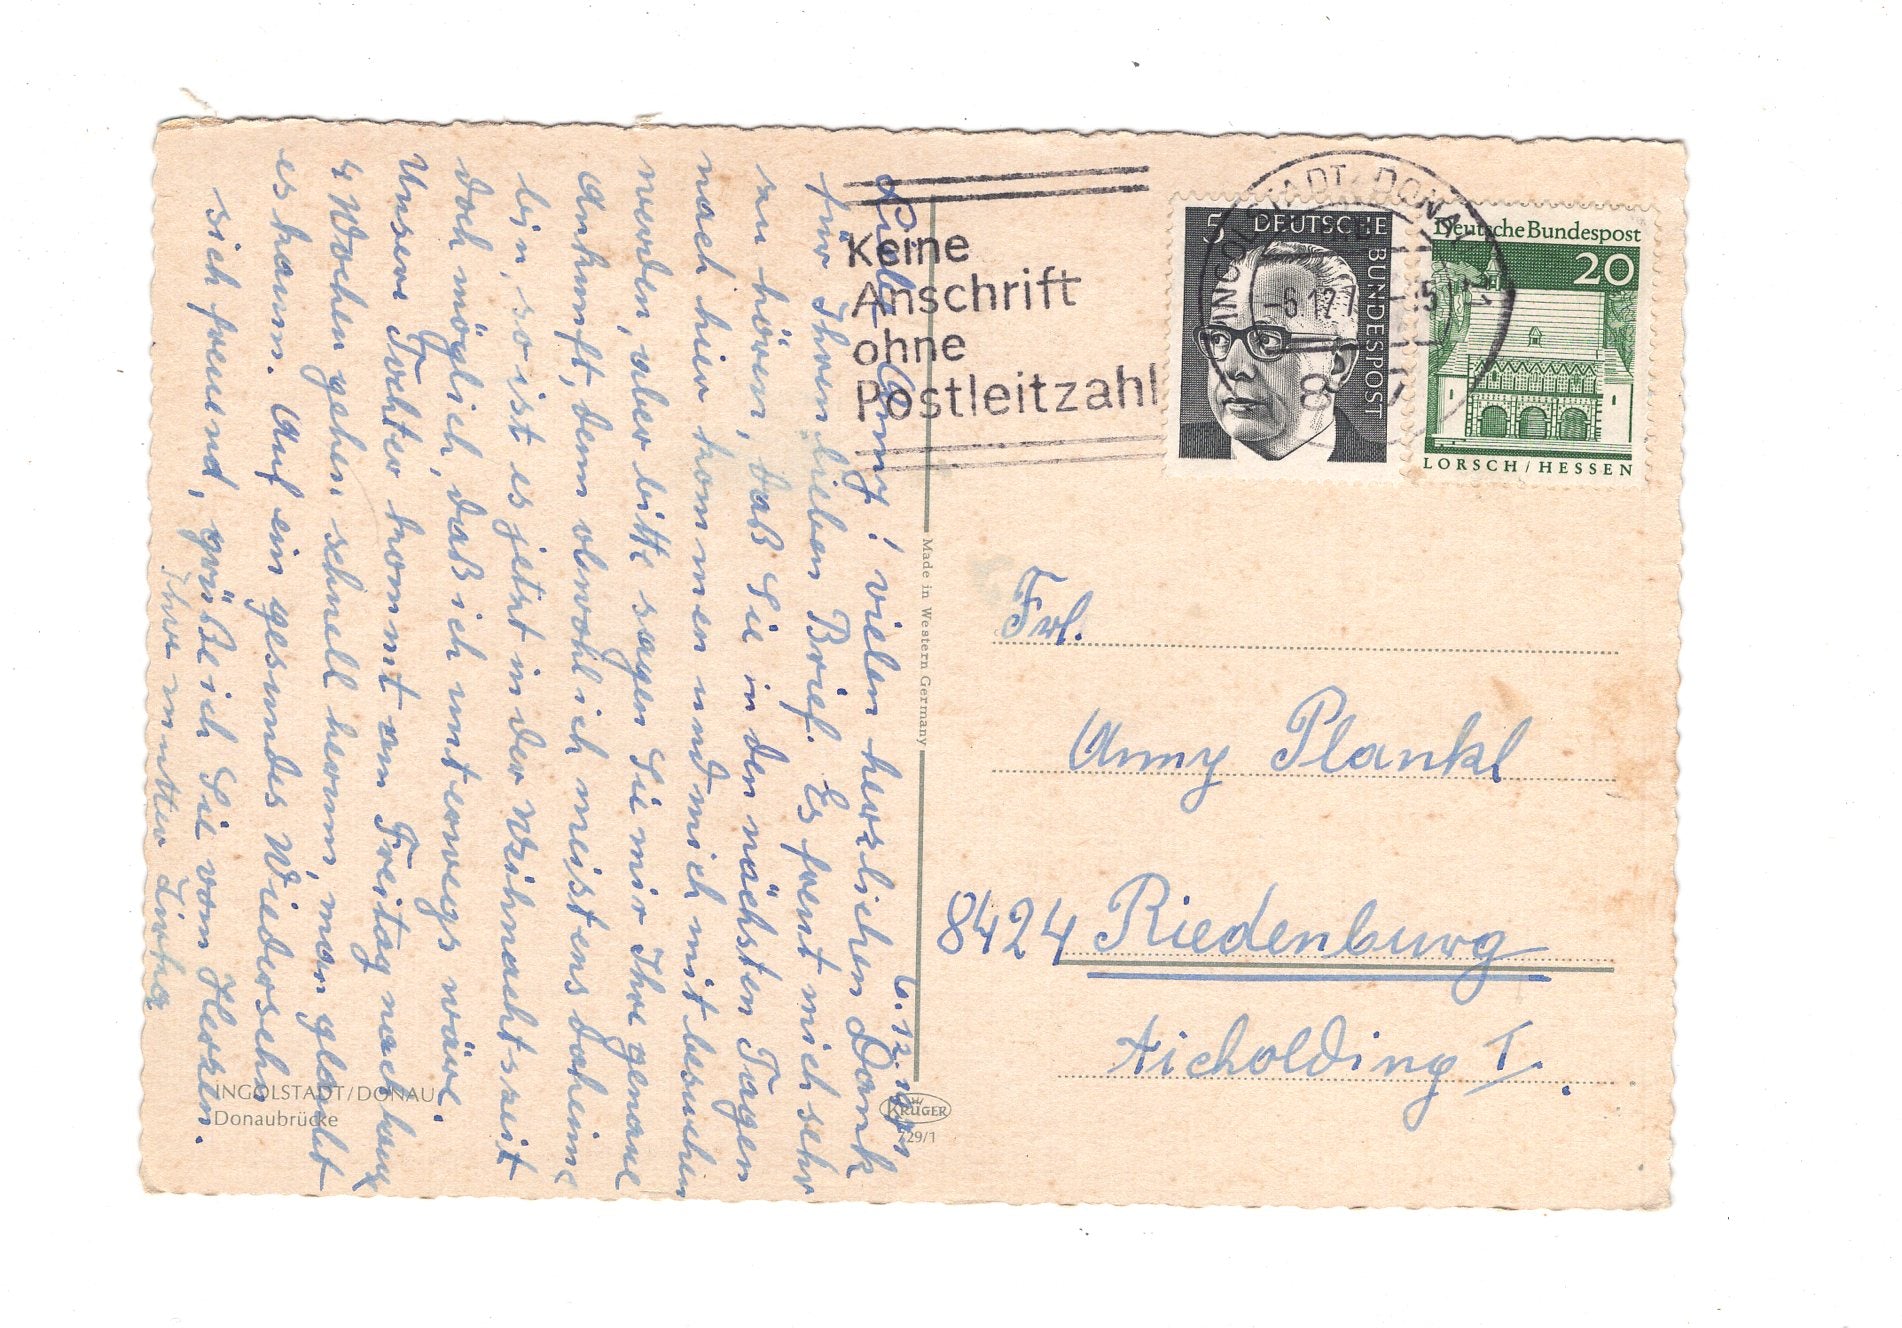 6.12.
Liebe Anny! vielen herzlichen Dank
für Ihren lieben Brief. Es freut mich sehr
zu hören, daß Sie in den nächsten Tagen
nach hier kommen und mich mit besuchen
werden, aber bitte sagen Sie mir Ihre genaue
Ankunft, denn obwohl ich meistens daheim
bin, so ist es jetzt in der Weihnachtszeit
doch möglich, daß ich unterwegs wäre.
Unsere Tochter kommt am Freitag nach
4 Wochen gehen schnell herum, man glaubt
es kaum. Auf ein gesundes Wiedersehn
sich freuend, grüße ich Sie von Herzen.
Ihre
INGOLSTADT/DONAU
Donaubrücke
Made in Western Germany
KRÜGER
729/1
Keine
Anschrift
ohne
Postleitzahl
INGOLSTADT, DONAU
-6.12.7
5 DEUTSCHE BUNDESPOST
Deutsche Bundespost
20
LORSCH/HESSEN
Frl.
Anny Plankl
8424 Riedenburg
Aicholding 7.